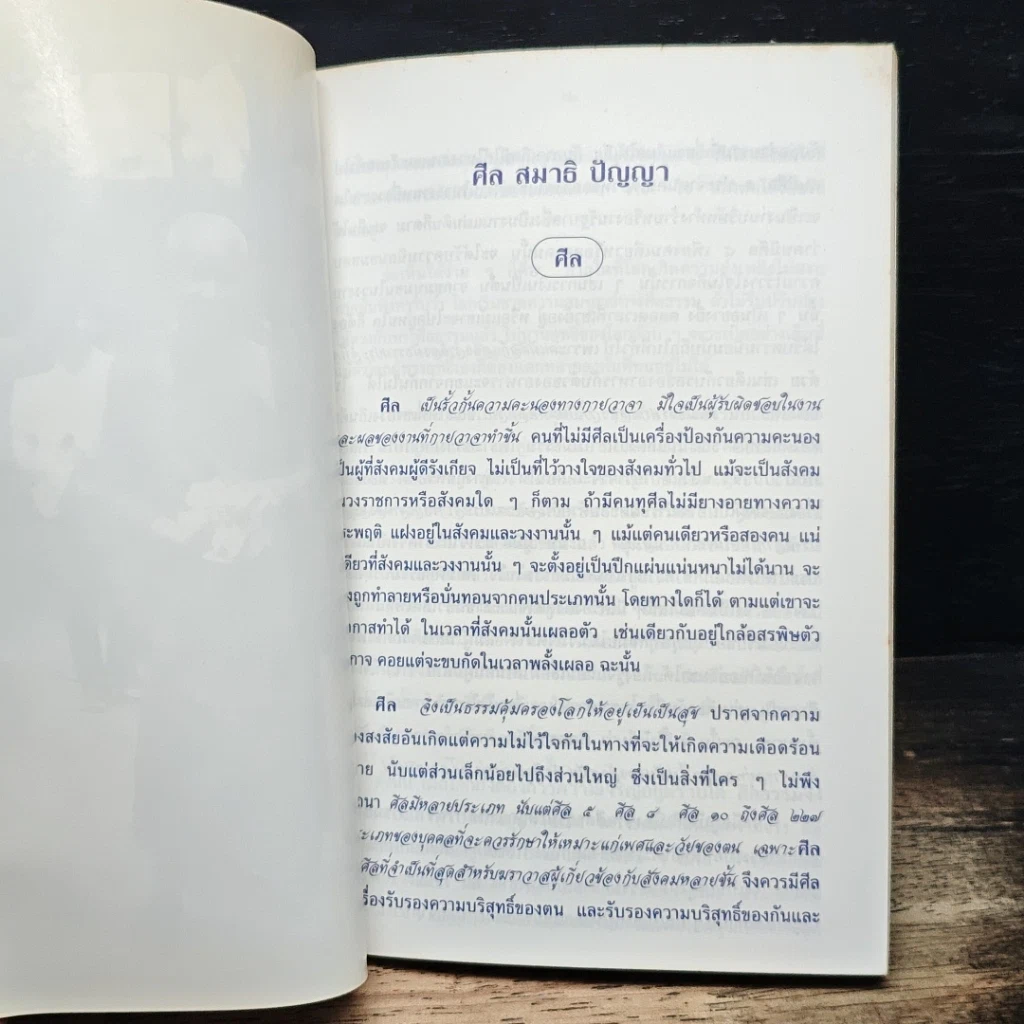 ศีล สมาธิ ปัญญา
ศีล
ศีล เป็นรั้วกั้นความคะนองทางกายวาจา มีใจเป็นผู้รับผิดชอบในงาน
ละผลของงานที่กายวาจาทำขึ้น คนที่ไม่มีศีลเป็นเครื่องป้องกันความคะนอง
ป็นผู้ที่สังคมผู้ดีรังเกียจ ไม่เป็นที่ไว้วางใจของสังคมทั่วไป แม้จะเป็นสังคม
นวงราชการหรือสังคมใด ๆ ก็ตาม ถ้ามีคนทุศีลไม่มียางอายทางความ
ระพฤติ แฝงอยู่ในสังคมและวงงานนั้น ๆ แม้แต่คนเดียวหรือสองคน แน่
ดียวที่สังคมและวงงานนั้น ๆ จะตั้งอยู่เป็นปึกแผ่นแน่นหนาไม่ได้นาน จะ
งถูกทำลายหรือบั่นทอนจากคนประเภทนั้น โดยทางใดก็ได้ ตามแต่เขาจะ
อกาสทำได้ ในเวลาที่สังคมนั้นเผลอตัว เช่นเดียวกับอยู่ใกล้อสรพิษตัว
กาจ คอยแต่จะขบกัดในเวลาพลั้งเผลอ ฉะนั้น
ศีล จึงเป็นธรรมคุ้มครองโลกให้อยู่เย็นเป็นสุข ปราศจากความ
งสงสัยอันเกิดแต่ความไม่ไว้ใจกันในทางที่จะให้เกิดความเดือดร้อน
าย นับแต่ส่วนเล็กน้อยไปถึงส่วนใหญ่ ซึ่งเป็นสิ่งที่ใคร ๆ ไม่พึง
นา ศีลมีหลายประเภท นับแต่ศีล ๕ ศีล ๘ ศีล ๑๐ ถึงศีล ๒๒๗
ะเภทของบุคคลที่จะควรรักษาให้เหมาะแก่เพศและวัยของตน เฉพาะศีล
ศีลที่จำเป็นที่สุดสำหรับฆราวาสผู้เกี่ยวข้องกับสังคมหลายชั้น จึงควรมีศีล
รื่องรับรองความบริสุทธิ์ของตน และรับรองความบริสุทธิ์ของกันและ